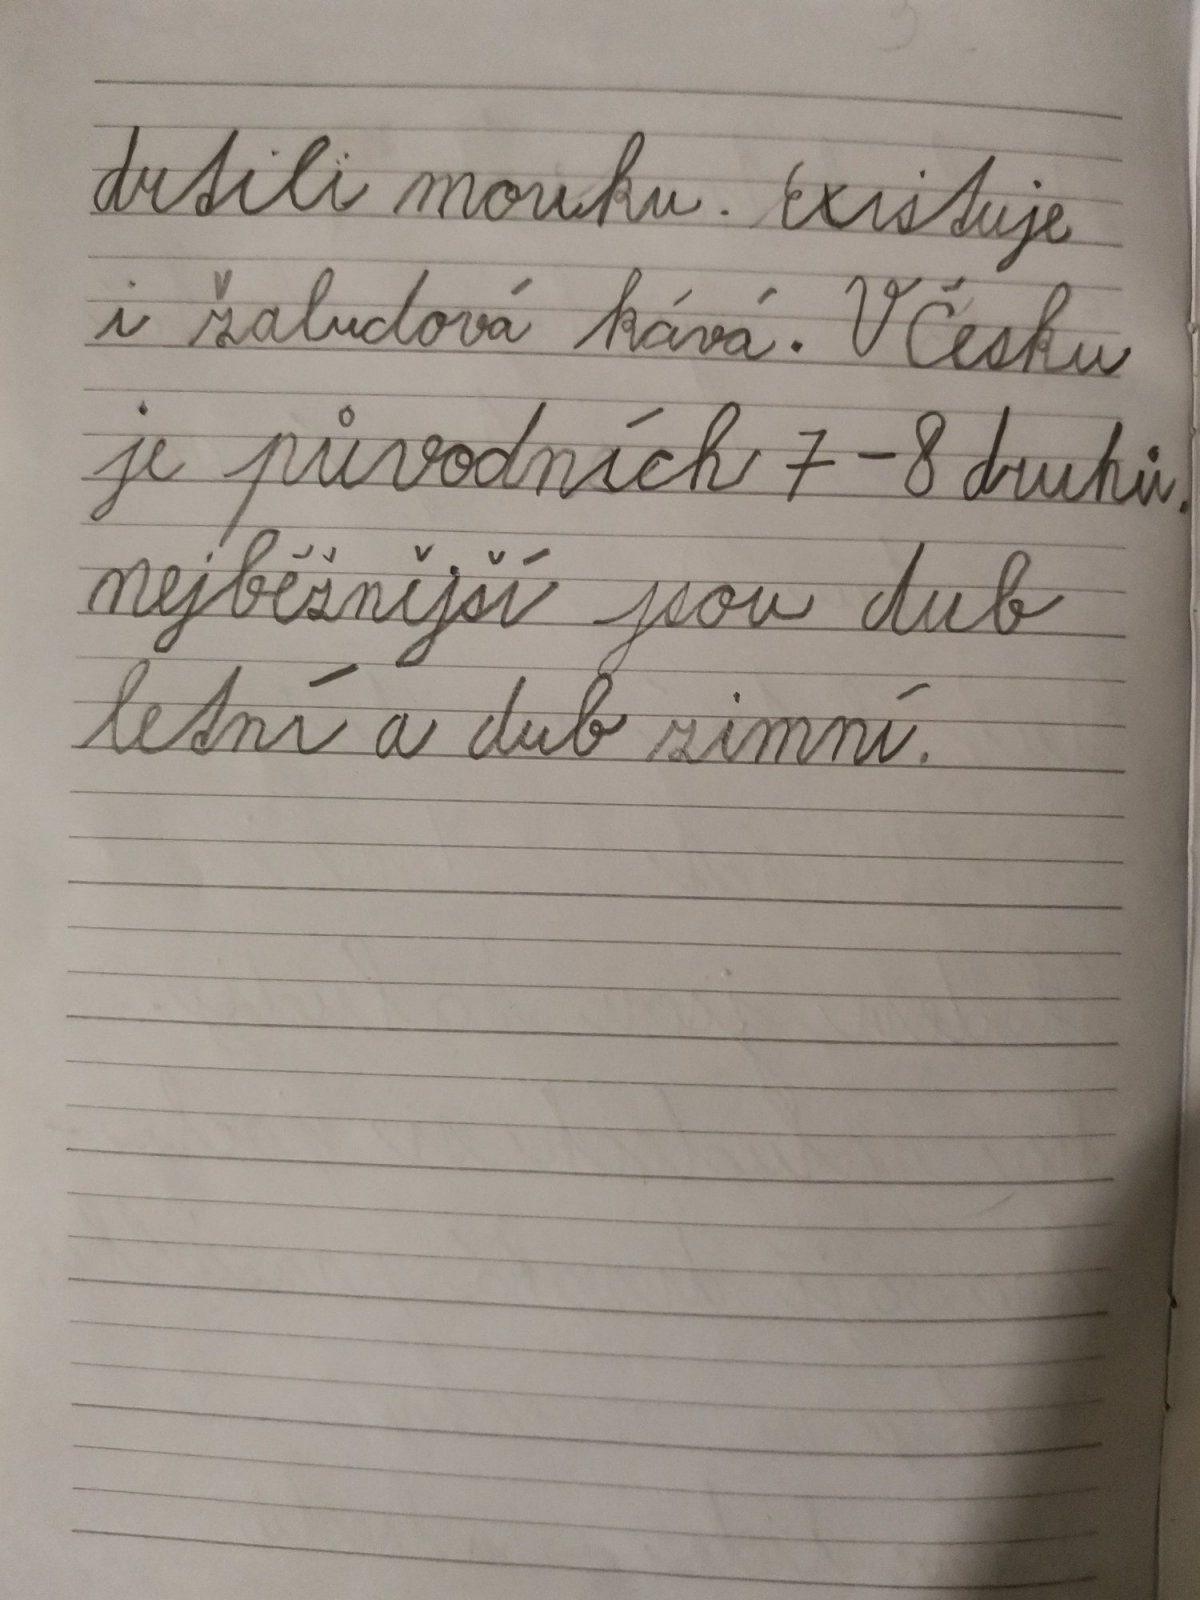 drtili mouku. Existuje
i žaludová kává. V Česku
je původních 7-8 druhů.
nejběžnější jsou dub
letní a dub zimní.